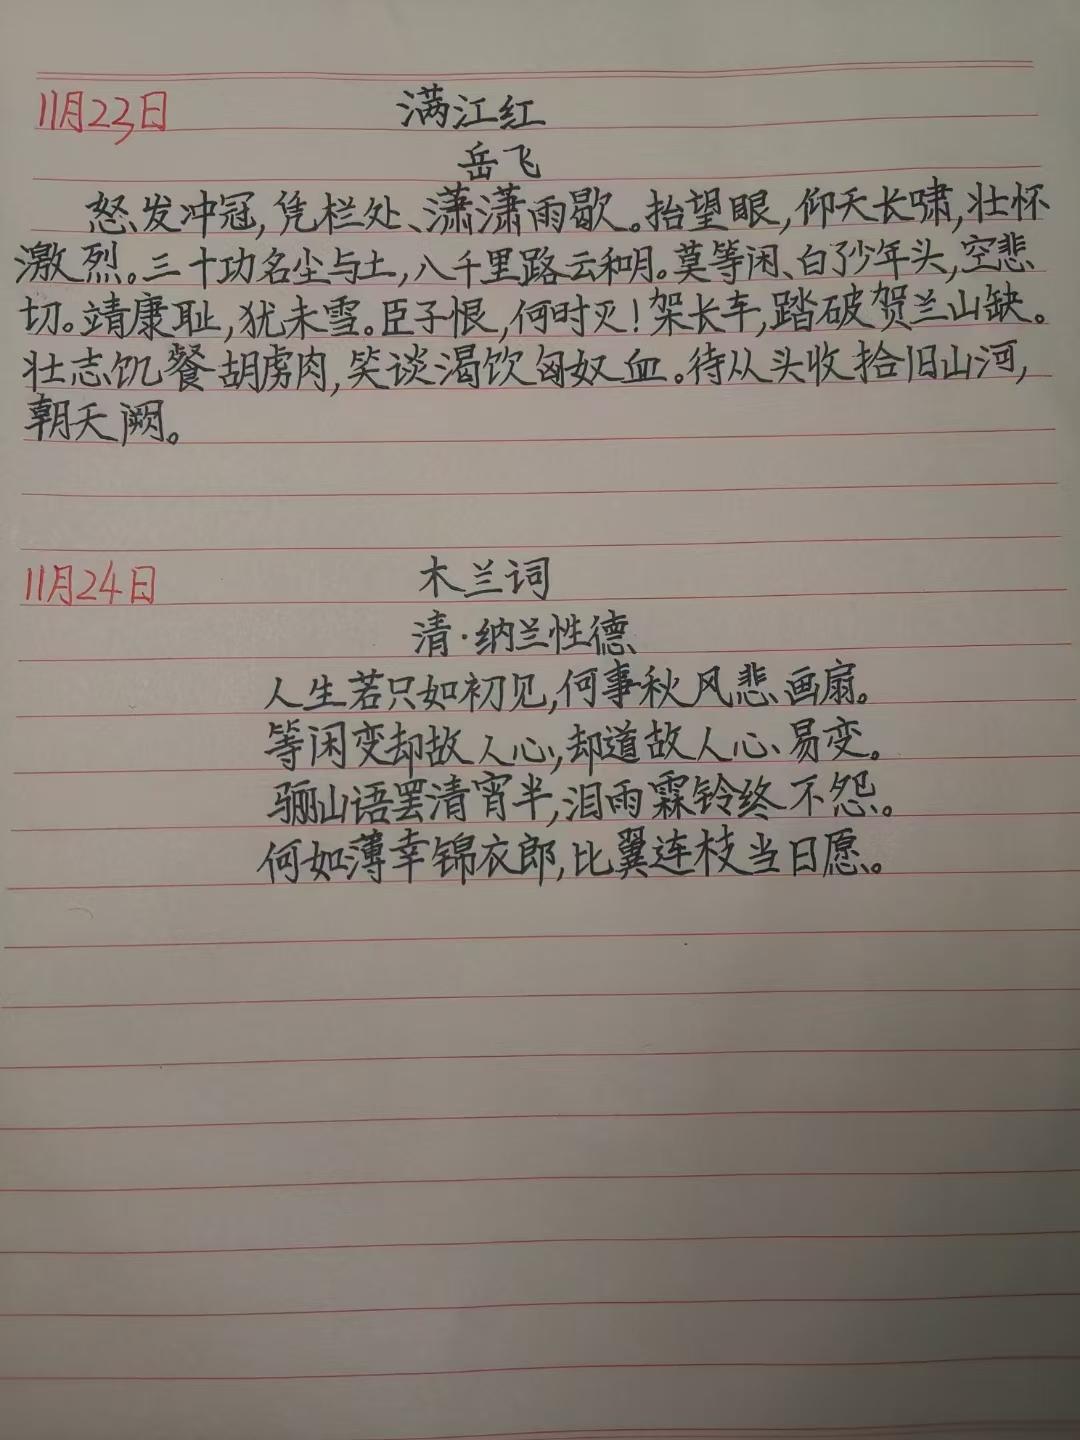 11月23日 满江红
岳飞
怒发冲冠,凭栏处、潇潇雨歇。抬望眼,仰天长啸,壮怀
激烈。三十功名尘与土,八千里路云和月。莫等闲、白了少年头,空悲
切。靖康耻,犹未雪。臣子恨,何时灭!架长车,踏破贺兰山缺。
壮志饥餐胡虏肉,笑谈渴饮匈奴血。待从头收拾旧山河,
朝天阙。
11月24日 木兰词
清·纳兰性德
人生若只如初见,何事秋风悲画扇。
等闲变却故人心,却道故人心易变。
骊山语罢清宵半,泪雨霖铃终不怨。
何如薄幸锦衣郎,比翼连枝当日愿。